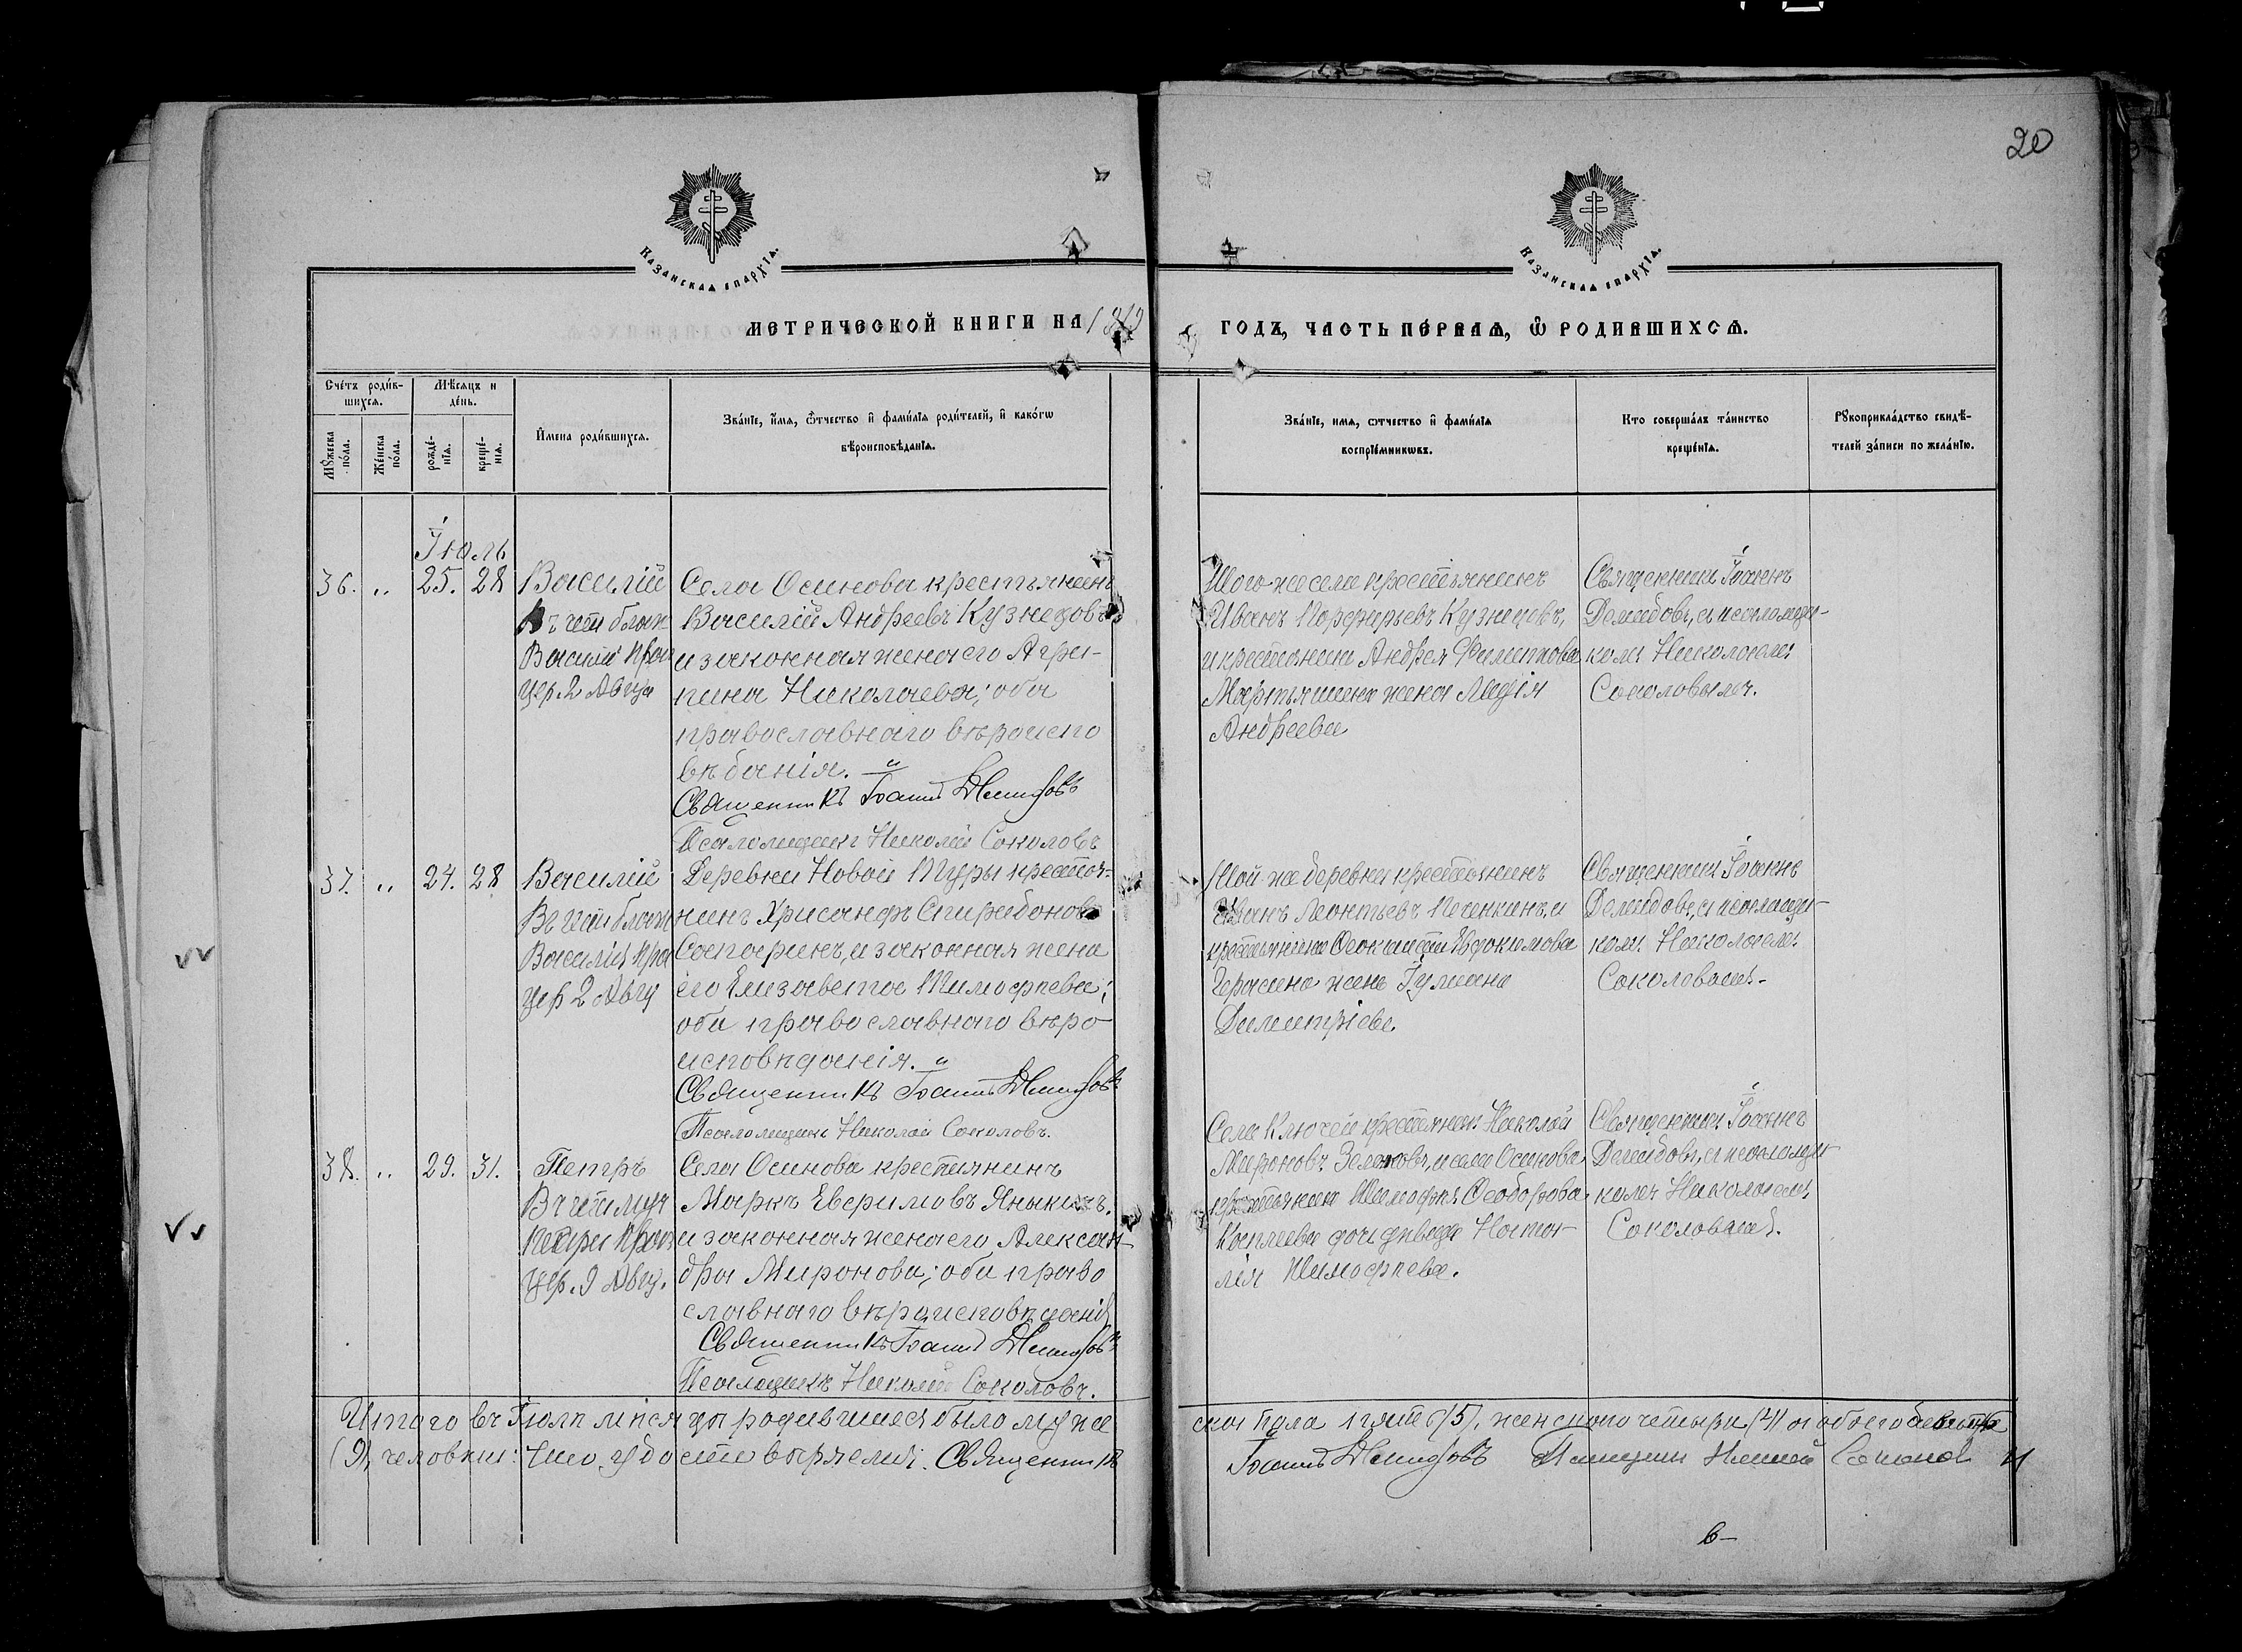 20
Казанская епархїѧ.
Казанская епархїѧ.
МЕТРИЧЕСКОЙ КНИГИ НА
ГОДЪ, ЧАСТЬ ПЕРВАѦ, Ѽ РОДИВШИХСѦ.
Сче́тъ роди́в-
шихсѧ.
Мѣ́сѧцъ и
де́нь.
Мꙋ́жеска
по́ла.
Же́нска
по́ла.
рожде́-
нїѧ.
креще́-
нїѧ.
И҆мена роди́вшихсѧ.
Зва́нїе, и҆́мѧ, ѻ҆́тчество и҆ фами́лїѧ роди́телей, и҆ како́гѡ
вѣроисповѣ́данїѧ.
Зва́нїе, имѧ, ѻтчество и҆ фами́лїѧ
воспрїе́мникѡвъ.
Кто соверша́лъ та́инство
креще́нїѧ.
Рꙋкоприкла́дство свидѣ́-
телей за́писи по жела́нїю.
Іюль
36. „ 25. 28
Василій
Въ чети блаж
Василія
цер. 2 Авгу
Села Осинова крестьянинъ
Василій Андреевъ Кузнецовъ
и законная жена его Агри-
пина Николаева; оба
православнаго вѣроиспо
вѣданія. „
Священникъ Іоаннъ Демидовъ
Псаломщикъ Николай Соколовъ
Того же села крестьянинъ
Иванъ Порфирьевъ Кузнецовъ,
и крестьянина Андрея Филиппова
Мартьяшина жена Лидія
Андреева
Священникъ Іоаннъ
Демидовъ, съ псаломщи-
комъ Николаемъ
Соколовымъ.
37. „ 24. 28
Василій
Въ чети блаж
Василія
цер 2 Авгу
Деревни Новой Туры крестья-
нинъ Хрисанфъ Спиридоновъ
и законная жена
его Елизавета Тимофѣева;
оба православнаго вѣро
исповѣданія. „
Священникъ Іоаннъ Демидовъ
Псаломщикъ Николай Соколовъ.
Той же деревни крестьянинъ
Иванъ Леонтьевъ Печенкинъ, и
крестьянина Феоктиста Евдокимова
жена Іулиана
Димитріева.
Священникъ Іоаннъ
Демидовъ, съ псаломщи-
комъ Николаемъ
Соколовымъ.
38. „ 29. 31.
Петръ
Въ чети муч
Петра
цер. 9 Авгу.
Села Осинова крестьянинъ
Маркъ Еверимовъ Яныкинъ.
и законная жена его Алексан-
дра Миронова; оба право
славнаго вѣроисповѣданія
Священникъ Іоаннъ Демидовъ
Псаломщикъ Николай Соколовъ.
Села Ключей крестьянинъ Николай
Мироновъ и села Осинова
крестьянина Тимофея Феодорова
дочь дѣвица Ната-
лія Тимофѣева.
Священникъ Іоаннъ
Демидовъ, съ псаломщи
комъ Николаемъ
Соколовымъ.
Итого въ Іюлѣ мѣсяцѣ родившихся было муже
скаго пола пять (5), женскаго четыре (4) а обоего девять
(9) человѣкъ: Что удостовѣряемъ: Священникъ
Іоаннъ Демидовъ Псаломщикъ Николай Соколовъ